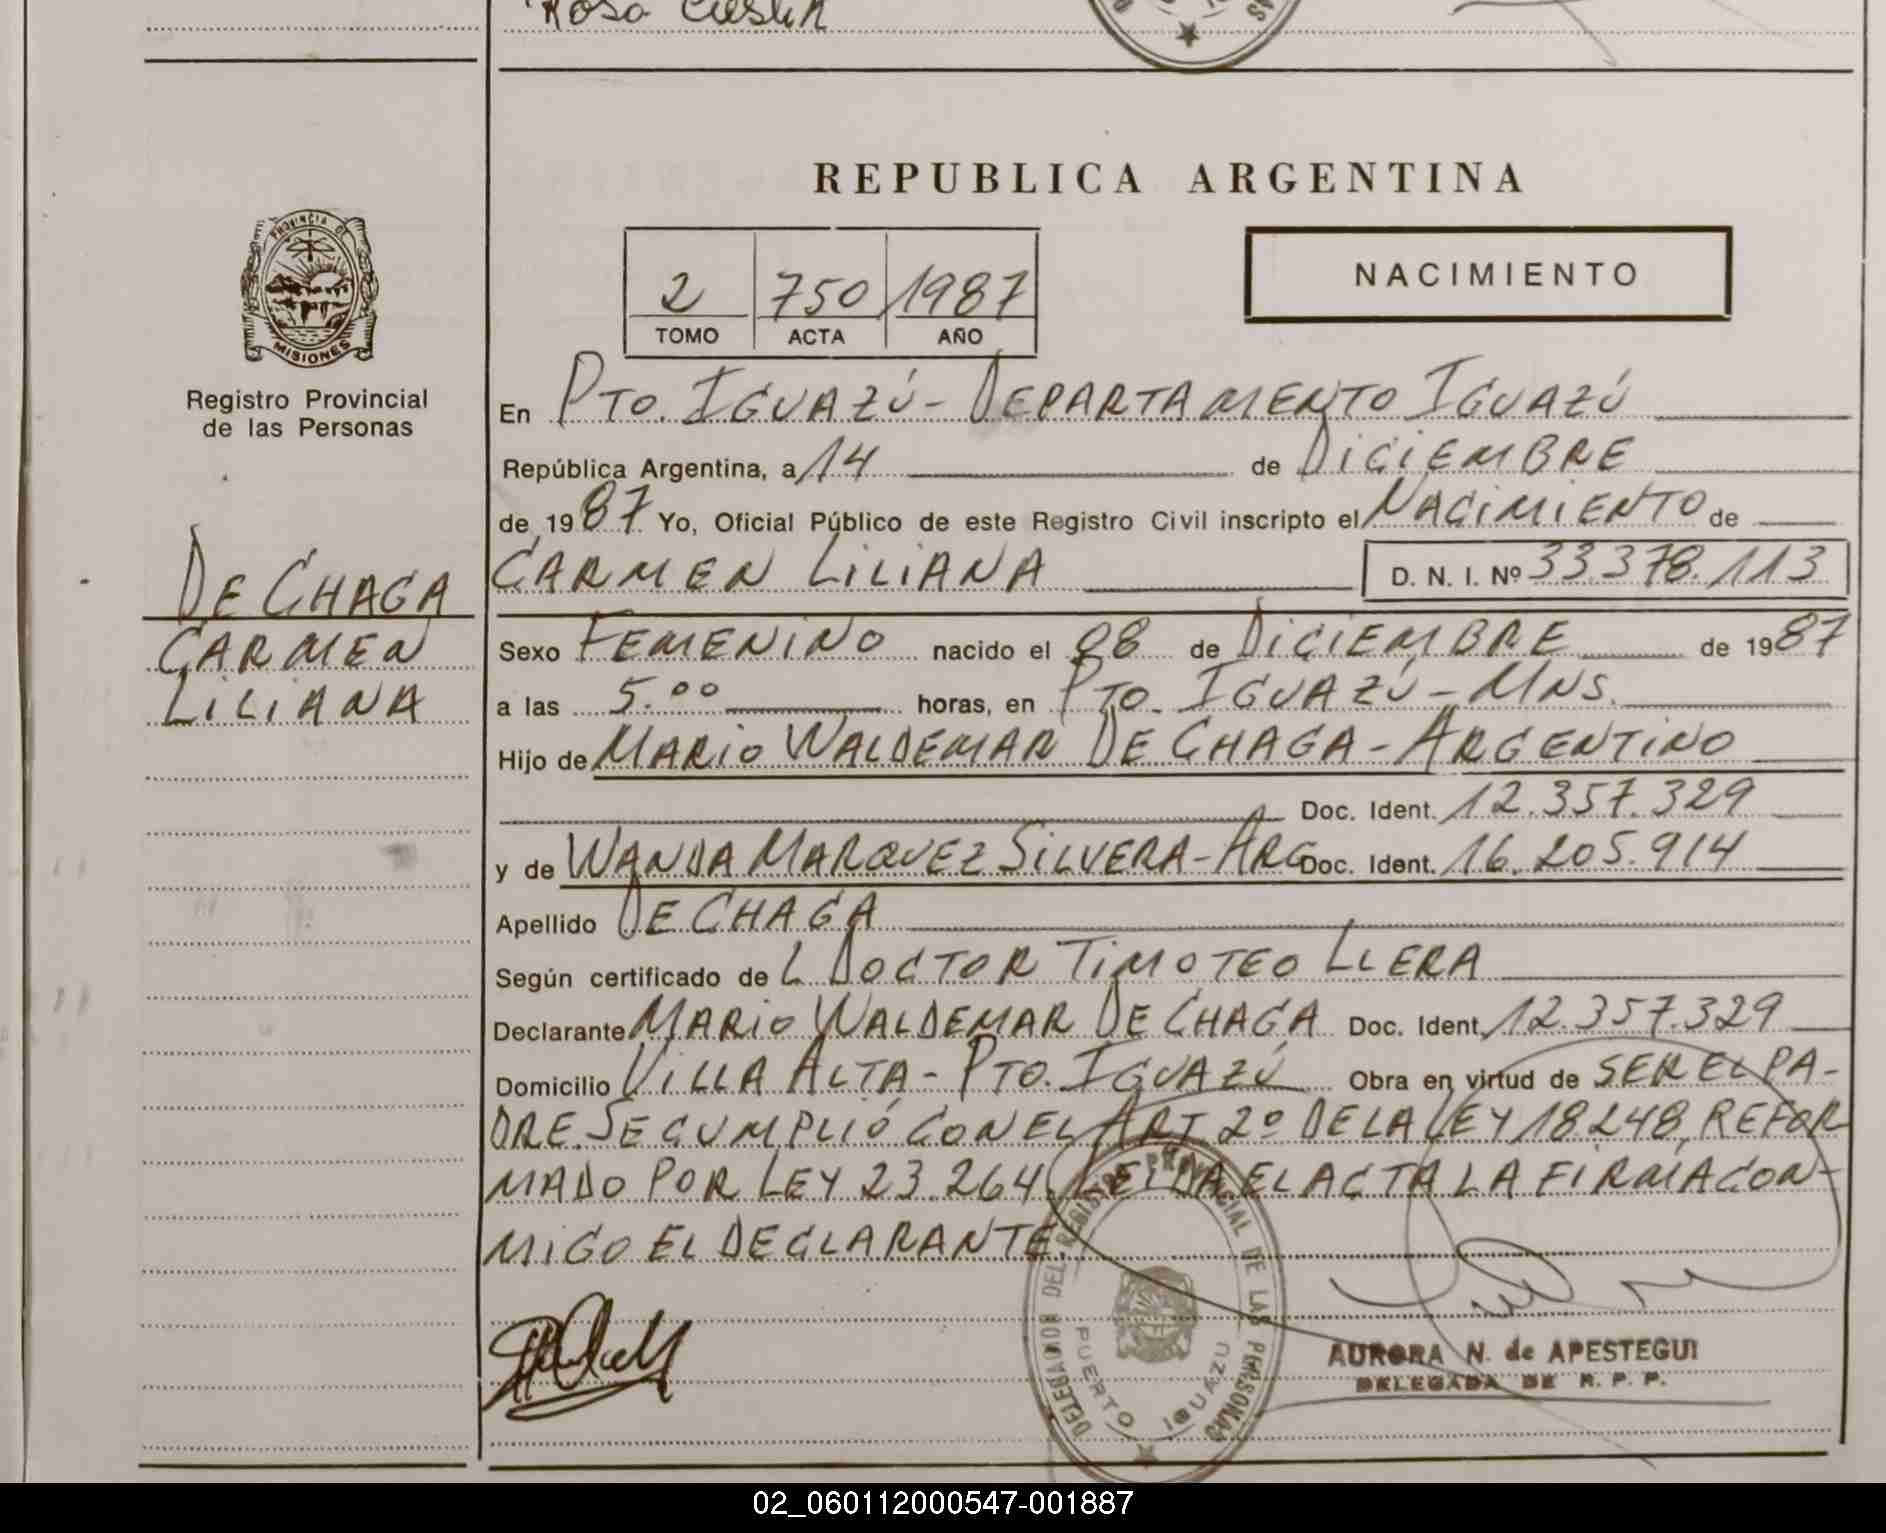 Rosa
REPUBLICA ARGENTINA
PROVINCIA DE
MISIONES
Registro Provincial
de las Personas
2 750 1987
TOMO ACTA AÑO
NACIMIENTO
En PTO. IGUAZÚ - DEPARTAMENTO IGUAZÚ
República Argentina, a 14 de DICIEMBRE
de 1987 Yo, Oficial Público de este Registro Civil inscripto el NACIMIENTO de
DE CHAGA
CARMEN
LILIANA
CARMEN LILIANA D. N. I. Nº 33.378.113
Sexo FEMENINO nacido el 08 de DICIEMBRE de 1987
a las 5.00 horas, en PTO. IGUAZÚ - MNS.
Hijo de MARIO WALDEMAR DE CHAGA - ARGENTINO
Doc. Ident. 12.357.329
y de WANDA MARQUEZ SILVERA - ARG Doc. Ident. 16.205.914
Apellido DE CHAGA
Según certificado de L DOCTOR TIMOTEO LLERA
Declarante MARIO WALDEMAR DE CHAGA Doc. Ident. 12.357.329
Domicilio VILLA ALTA - PTO. IGUAZÚ Obra en virtud de SER EL PA-
DRE. SE CUMPLIÓ CON EL ART 2º DE LA LEY 18248, REFOR
MADO POR LEY 23.264. LEIDA EL ACTA LA FIRMA CON-
MIGO EL DECLARANTE.
DEL REGISTRO PROVINCIAL DE LAS PERSONAS
PUERTO IGUAZU
AURORA N. de APESTEGUI
DELEGADA DE R. P. P.
02_060112000547-001887